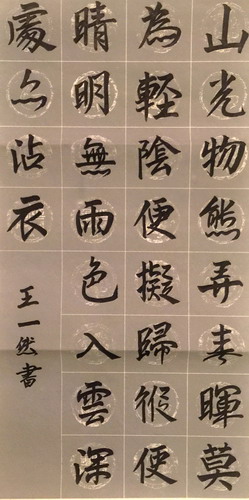 山光物態弄春暉莫
為輕陰便擬歸縱使
晴明無雨色入雲深
處亦沾衣
王一然書